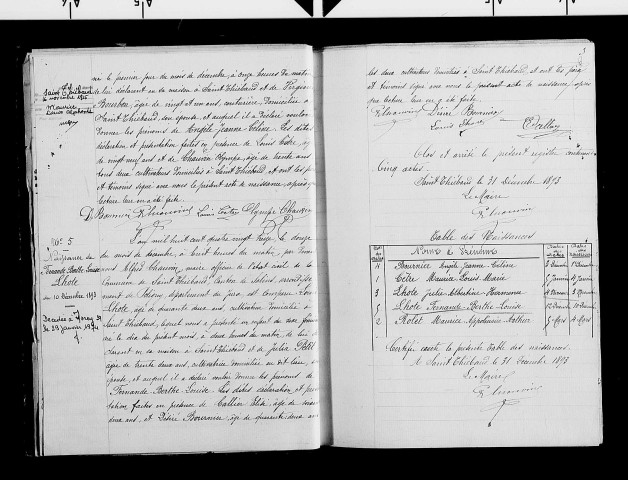 né le premier jour du mois de décembre, à onze heures du matin
de lui déclarant en sa maison à Saint Thiébaud et de Virginie
Bombois, âgée de vingt et un ans, couturière, domiciliée à
Saint Thiébaud, son épouse, et auquel il a déclaré vouloir
donner les prénoms de Angèle Jeanne Céline. Les dites
déclaration et présentation faites en présence de Louis Cêtre, âgé
de vingt neuf ans et de Chauvin Olympe, âgé de trente ans
tous deux cultivateurs domiciliés à Saint Thiébaud, et ont les père
et témoins signé avec nous le présent acte de naissance, après que
lecture leur en a été faite.
D. Bournier Louis Cêtre Olympe Chauvin
N° 5
Naissance de
Fernande Berthe Louise
Lhote
du 10 Décembre 1893
Décédée à Morez
le 23 janvier
L'an mil huit cent quatre vingt treize, le douze
du mois de décembre, à huit heures du matin, par devant
nous Alfred Chauvin, maire officier de l'état civil de la
Commune de Saint Thiébaud, Canton de Salins, arrondisse
ment de Poligny, département du Jura, est comparu
Lhote, âgé de quarante deux ans, cultivateur domicilié à
Saint Thiébaud, lequel nous a présenté un enfant du sexe féminin
né le dix du présent mois, à deux heures du matin, de lui dé
clarant en sa maison à Saint Thiébaud et de Julie Petit
âgée de trente deux ans, cultivatrice domiciliée au dit lieu, son
épouse, et auquel il a déclaré vouloir donner les prénoms de
Fernande Berthe Louise. Les dites déclaration et présen
tation faites en présence de Vallier Elisé, âgé de
deux ans, et Désiré Bournier, âgé de quarante deux ans
3
tous deux cultivateurs domiciliés à Saint Thiébaud, et ont les père
et témoins signé avec nous le présent acte de naissance, après
que lecture leur en a été faite.
Désiré Bournier
Louis Lhote E Vallier
Clos et arrêté le présent registre contenant
Cinq actes.
Saint Thiébaud le 31 Décembre 1893
Le Maire
Table des Naissances
Noms & Prénoms
4 Bournier Angèle Jeanne Céline
1 Cêtre Maurice Louis Marie
3 Lhote Julie Albertine Hermance
5 Lhote Fernande Berthe Louise
2 Rolet Maurice Napoléon Arthur
Certifié exacte la présente table des naissances.
A Saint Thiébaud le 31 Décembre 1893
Le Maire